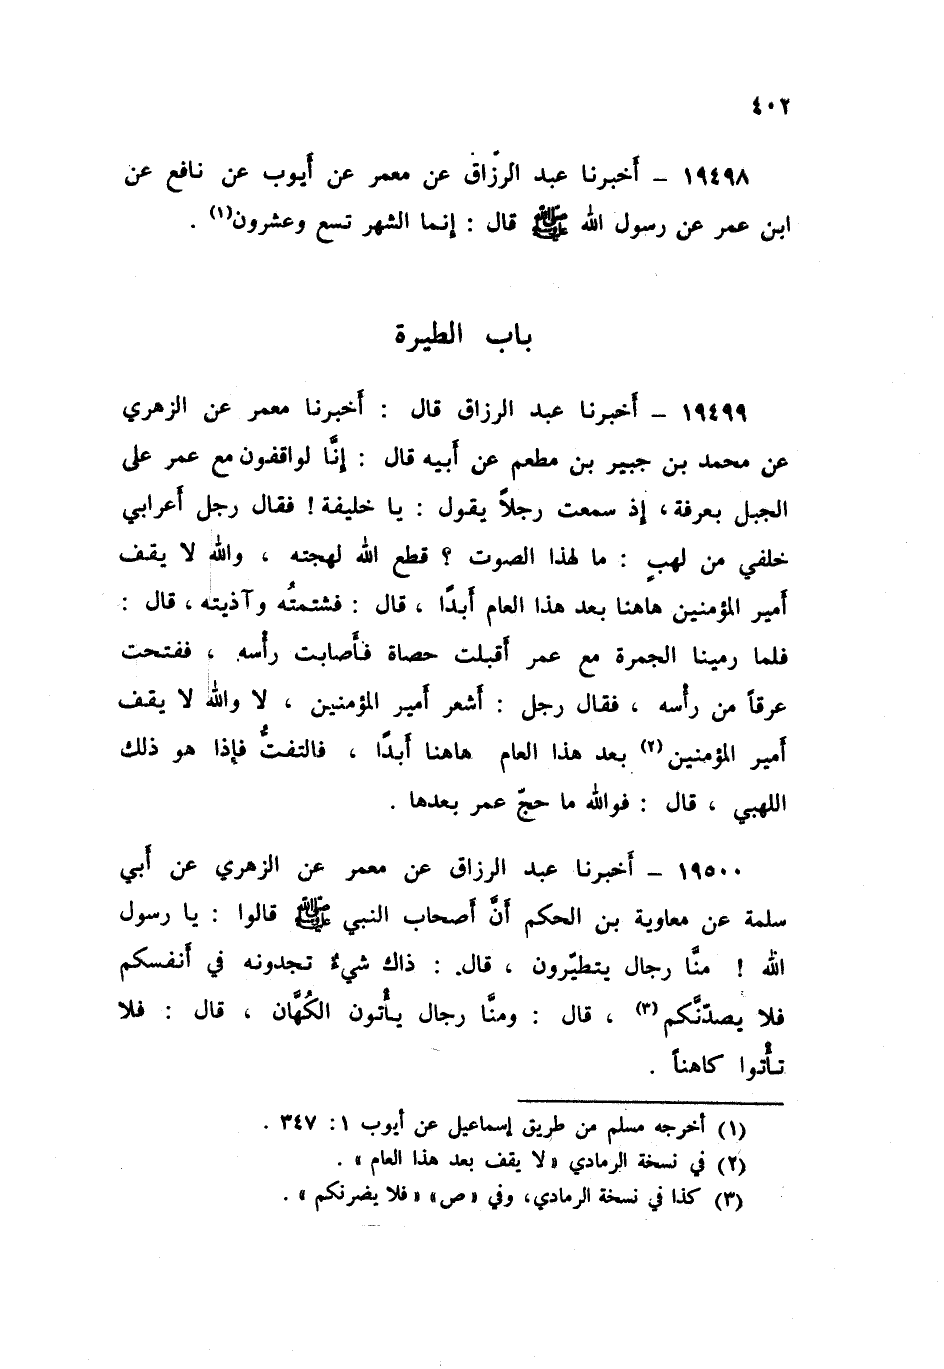 ٤٠٢
١٩٤٩٨ ـ أخبرنا عبد الرزّاق عن معمر عن أيوب عن نافع عن
ابن عمر عن رسول الله ﷺ قال : إنما الشهر تسع وعشرون(١) .
باب الطيرة
١٩٤٩٩ ـ أخبرنا عبد الرزاق قال : أخبرنا معمر عن الزهري
عن محمد بن جبير بن مطعم عن أبيه قال : إنَّا لواقفون مع عمر على
الجبل بعرفة، إذ سمعت رجلاً يقول : يا خليفة! فقال رجل أعرابي
خلفي من لهبٍ : ما لهذا الصوت ؟ قطع الله لهجته ، والله لا يقف
أمير المؤمنين هاهنا بعد هذا العام أبدًا ، قال : فشتمتُه وآذيته ، قال :
فلما رمينا الجمرة مع عمر أقبلت حصاة فأصابت رأسه ، ففتحت
عرقاً من رأسه ، فقال رجل : أشعر أمير المؤمنين ، لا والله لا يقف
أمير المؤمنين(٢) بعد هذا العام هاهنا أبدًا ، فالتفتُّ فإذا هو ذلك
اللهبي ، قال : فوالله ما حجّ عمر بعدها .
١٩٥٠٠ ـ أخبرنا عبد الرزاق عن معمر عن الزهري عن أبي
سلمة عن معاوية بن الحكم أنَّ أصحاب النبي ﷺ قالوا : يا رسول
الله ! منَّا رجال يتطيّرون ، قال : ذاك شيءٌ تجدونه في أنفسكم
فلا يصدّنَّكم(٣) ، قال : ومنَّا رجال يأتون الكُهَّان ، قال : فلا
تأتوا كاهناً .
(١) أخرجه مسلم من طريق إسماعيل عن أيوب ١: ٣٤٧ .
(٢) في نسخة الرمادي «لا يقف بعد هذا العام» .
(٣) كذا في نسخة الرمادي، وفي «ص» «فلا يضرنكم» .